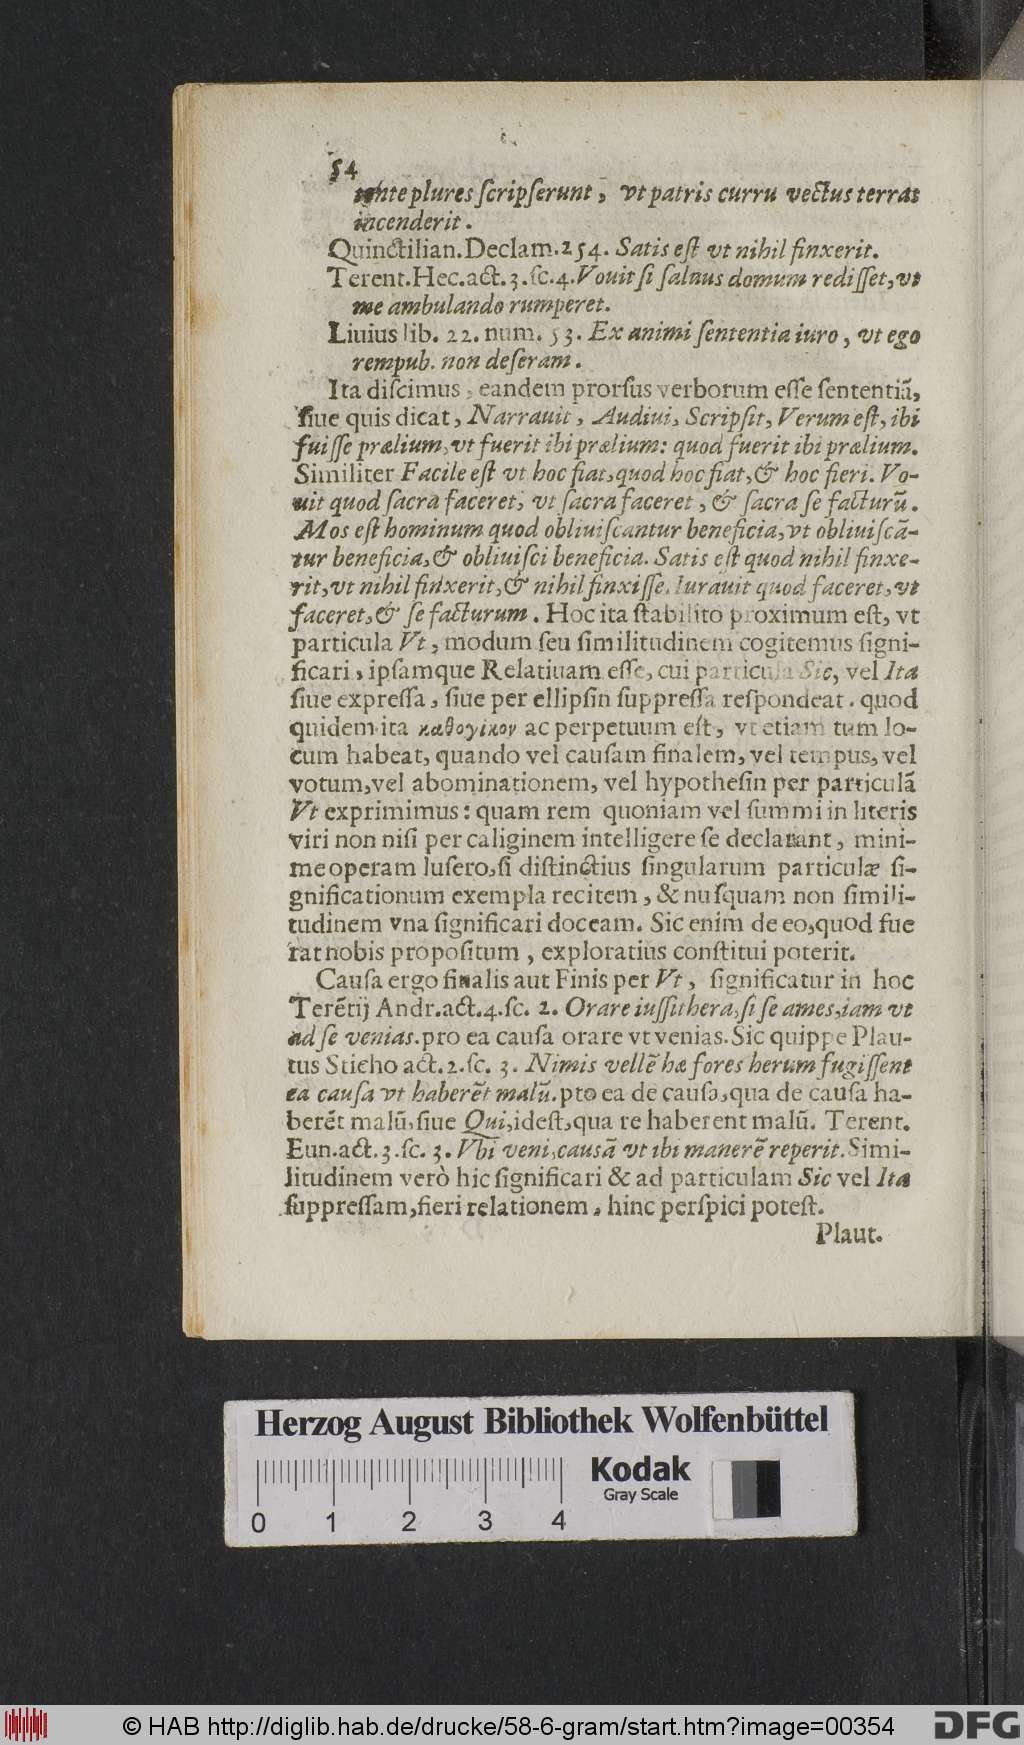 54
ante plures ſcripſerunt, vt patris curru vectus terras
incenderit.
Quinctilian. Declam. 254. Satis eſt vt nihil finxerit.
Terent. Hec. act. 3. ſc. 4. Vouit ſi ſaluus domum rediſſet, vt
me ambulando rumperet.
Liuius lib. 22. num. 53. Ex animi ſententia iuro, vt ego
rempub. non deſeram.
Ita diſcimus, eandem prorſus verborum eſſe ſententiã,
ſiue quis dicat, Narrauit, Audiui, Scripſit, Verum eſt, ibi
fuiſſe prælium, vt fuerit ibi prælium: quod fuerit ibi prælium.
Similiter Facile eſt vt hoc fiat, quod hoc fiat, & hoc fieri. Vo-
uit quod ſacra faceret, vt ſacra faceret, & ſacra ſe facturũ.
Mos eſt hominum quod obliuiſcantur beneficia, vt obliuiſcã-
tur beneficia, & obliuiſci beneficia. Satis eſt quod nihil finxe-
rit, vt nihil finxerit, & nihil finxiſſe. Iurauit quod faceret, vt
faceret, & ſe facturum. Hoc ita ſtabilito proximum eſt, vt
particula Vt, modum ſeu ſimilitudinem cogitemus ſigni-
ficari, ipſamque Relatiuam eſſe, cui particula Sic, vel Ita
ſiue expreſſa, ſiue per ellipſin ſuppreſſa reſpondeat. quod
quidem ita καθογικον ac perpetuum eſt, vt etiam tum lo-
cum habeat, quando vel cauſam finalem, vel tempus, vel
votum, vel abominationem, vel hypotheſin per particulã
Vt exprimimus: quam rem quoniam vel ſummi in literis
viri non niſi per caliginem intelligere ſe declarant, mini-
me operam luſero, ſi diſtinctius ſingularum particulæ ſi-
gnificationum exempla recitem, & nuſquam non ſimili-
tudinem vna ſignificari doceam. Sic enim de eo, quod fue
rat nobis propoſitum, exploratius conſtitui poterit.
Cauſa ergo finalis aut Finis per Vt, ſignificatur in hoc
Terẽtij Andr. act. 4. ſc. 2. Orare iuſſit hera, ſi ſe ames, iam vt
ad ſe venias. pro ea cauſa orare vt venias. Sic quippe Plau-
tus Sticho act. 2. ſc. 3. Nimis vellẽ hæ fores herum fugiſſent
ea cauſa vt haberẽt malũ. pro ea de cauſa, qua de cauſa ha-
berẽt malũ, ſiue Qui, ideſt, qua re haberent malũ. Terent.
Eun. act. 3. ſc. 3. Vbi veni, cauſã vt ibi manerẽ reperit. Simi-
litudinem verò hic ſignificari & ad particulam Sic vel Ita
ſuppreſſam, fieri relationem, hinc perſpici poteſt.
Plaut.
Herzog August Bibliothek Wolfenbüttel
Kodak
Gray Scale
0 1 2 3 4
© HAB http://diglib.hab.de/drucke/58-6-gram/start.htm?image=00354
DFG